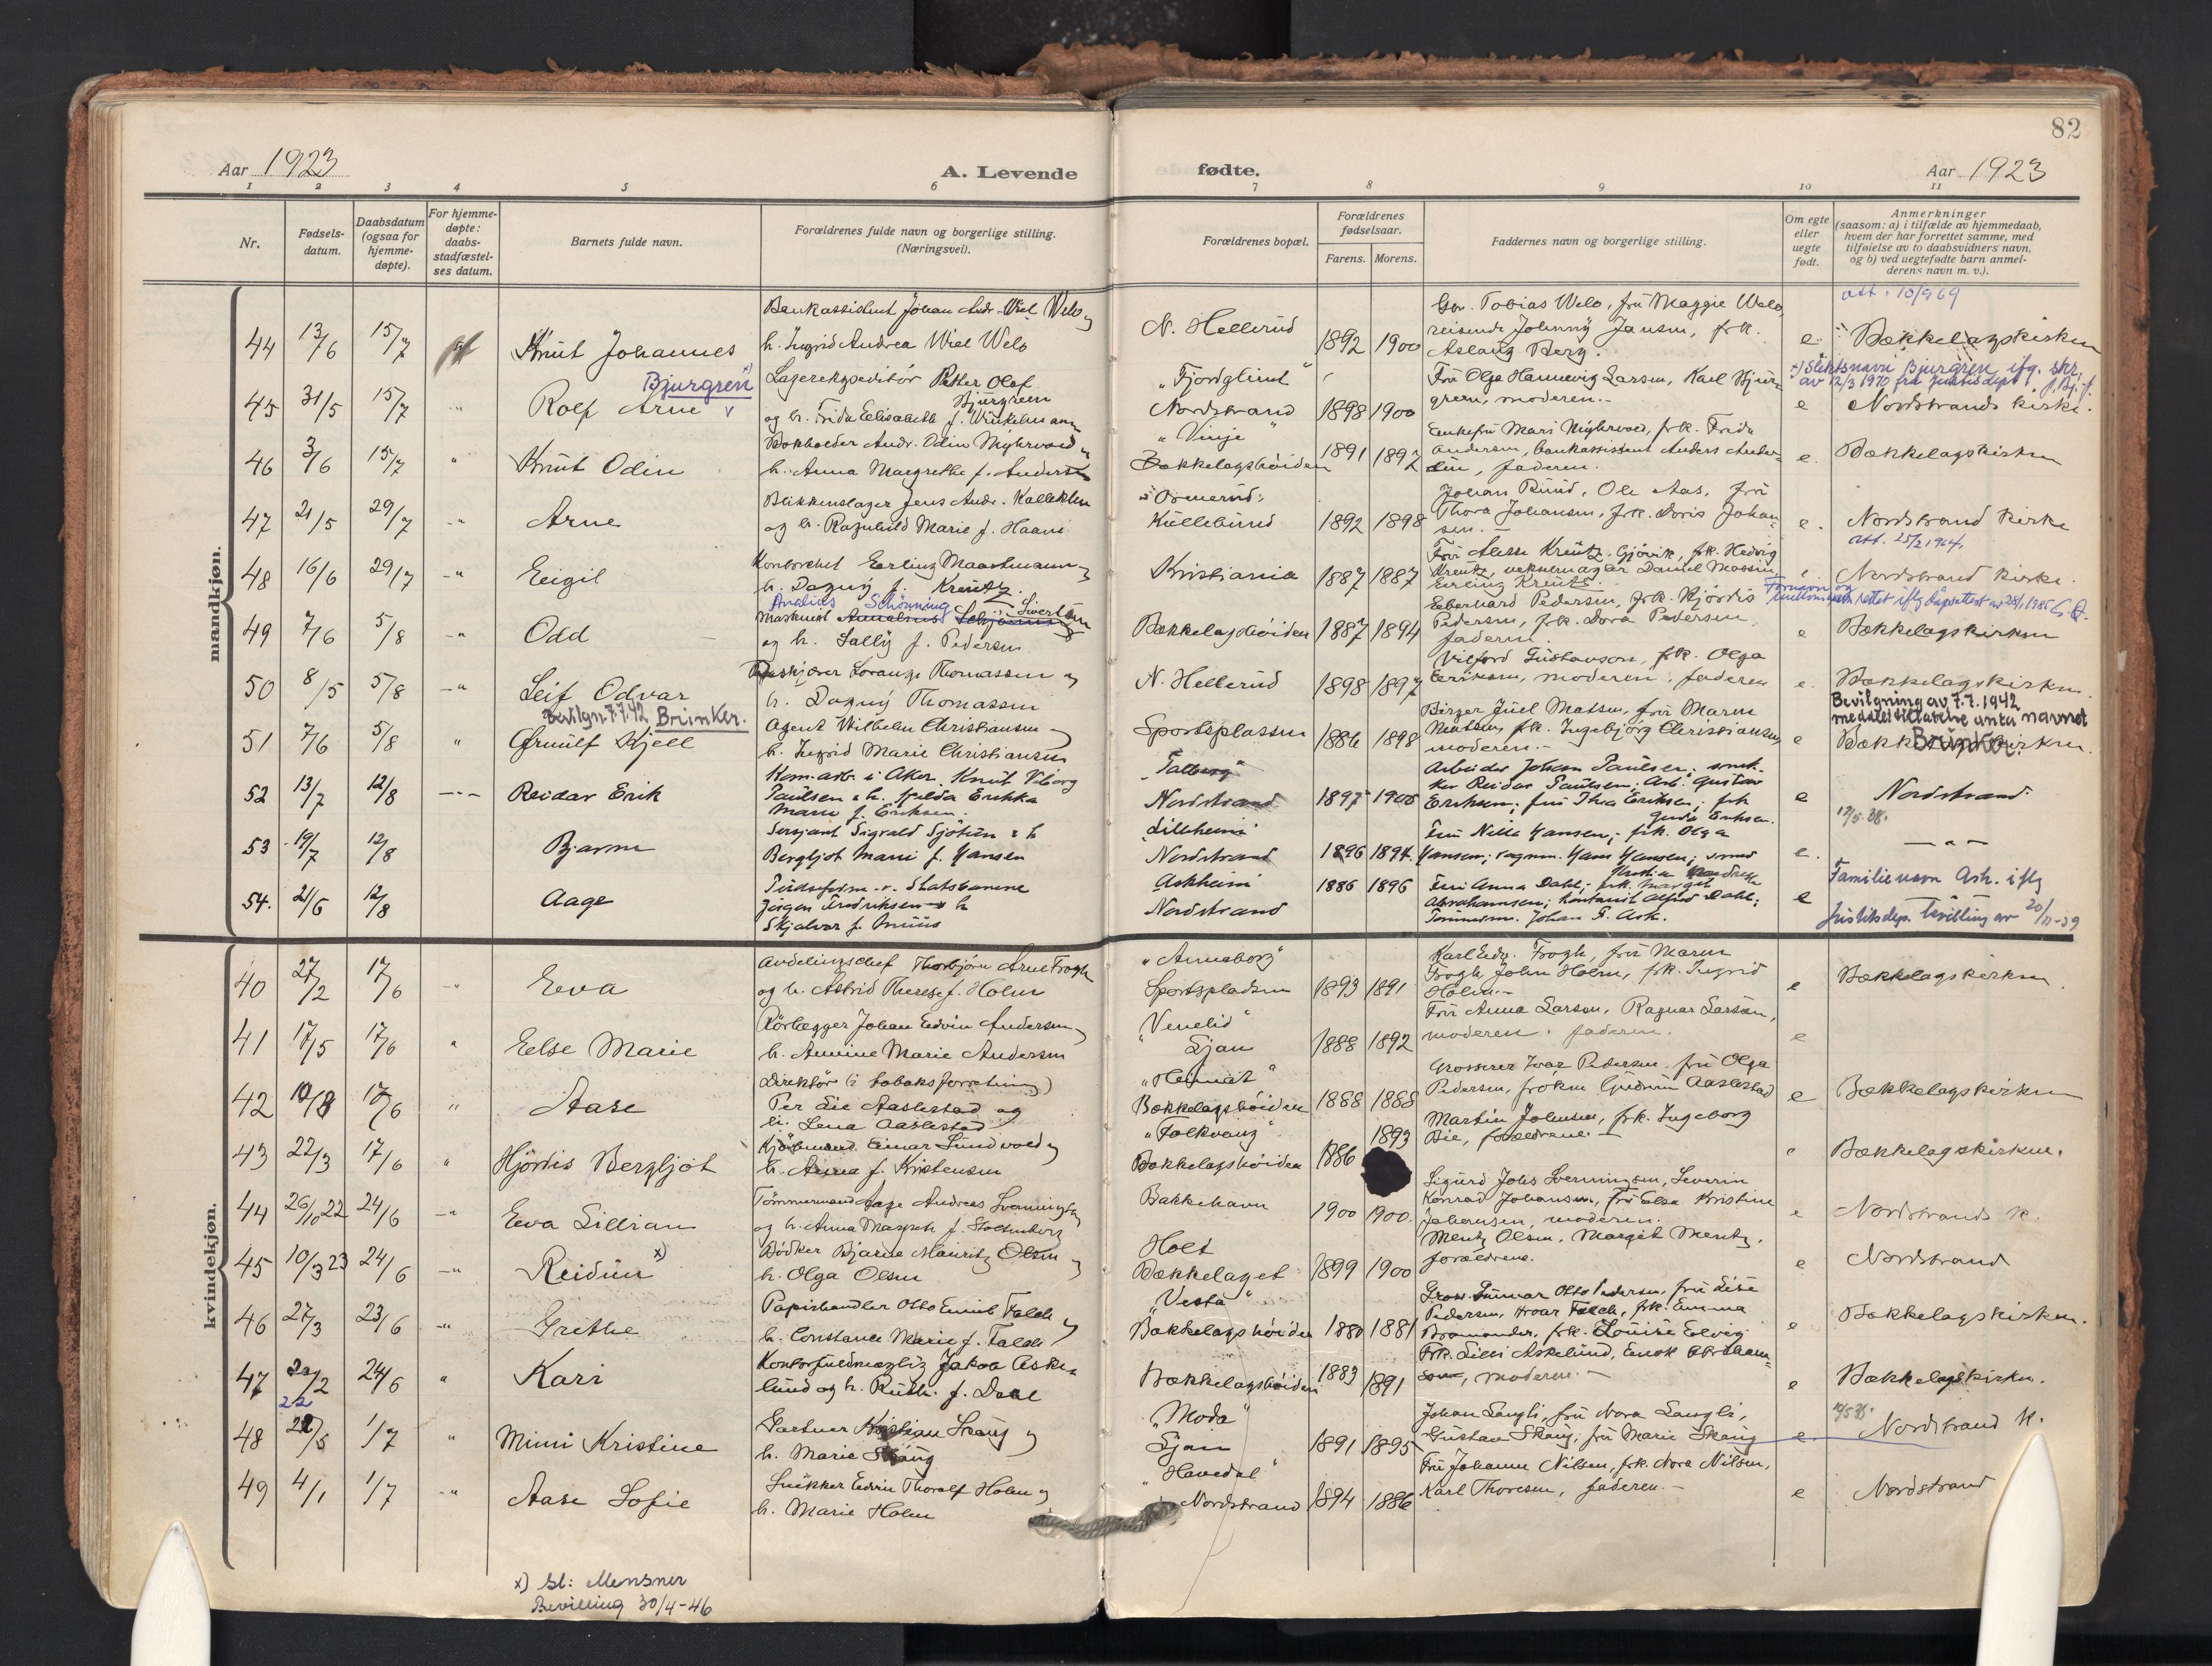 82
Aar 1923 A. Levende fødte. Aar 1923
1 2 3 4 5 6 7 8 9 10 11
Nr.
Fødsels-
datum.
Daabsdatum
(ogsaa for
hjemme-
døpte).
For hjemme-
døpte:
daabs-
stadfæstel-
ses datum.
Barnets fulde navn.
Forældrenes fulde navn og borgerlige stilling.
(Næringsvei).
Forældrenes bopæl.
Forældrenes
fødselsaar.
Farens. Morens.
Faddernes navn og borgerlige stilling.
Om egte
eller
uegte
født.
Anmerkninger
(saasom: a) i tilfælde av hjemmedaab,
hvem der har forrettet samme, med
tilføielse av to daabsvidners navn,
og b) ved uegtefødte barn anmel-
derens navn m. v.).
mandkjøn.
44 13/6 15/7 Knut Johannes
Bankassistent Johan Andr. Wiel Welo og
h. Ingrid Andrea Wiel Welo
N. Hellerud 1892 1900
Tobias Welo, fru Maggie Welo,
reisende Johnny Jansen, frk.
Aslaug Berg.
e. Bækkelagskirken
att. 10/9 69
45 31/5 15/7 Rolf Arne Bjurgren
Lagerekspeditör Petter Olof
Bjurgreen
og h. Frida Elisabeth f. Winkelmann
"Fjordglimt"
Nordstrand 1898 1900
Fru Olga Hannevig Larsen, Karl Bjur-
green, moderen.-
e Nordstrands kirke.
Slektsnavn Bjurgren ifg. skr.
av 12/3 1970 fra Justisdept.
46 3/6 15/7 " Knut Odin
Bokholder Andr. Odin Myhrvold og
h. Anna Margrethe f. Andersen
"Vinje"
Bækkelagshöiden 1891 1892
Enkefru Mari Myhrvold, frk. Frida
Andersen, bankassistent Anders Ander-
sen, faderen.
e. Bækkelagskirken
47 21/5 29/7 -"- Arne
Blikkenslager Jens Andr. Kallekleu
og h. Ragnhild Marie f. Haani
"Ormerud"
Kullebund 1892 1898
Johan Rund, Ole Aas, fru
Thora Johansen, frk. Doris Johan-
sen.-
e. Nordstrand Kirke
att. 25/2 1964.
48 16/6 29/7 -"- Eigil
Kontorchef Erling Maartmann og
h. Dagny f. Kreutz
Kristiania 1887 1887
Fru Kreutz, Gjövik, frk. Hedvig
Kreutz, Daniel
Erling Kreutz.
Nordstrand Kirke.
49 7/6 5/8 -"- Odd
Schönning Sivertsen
Maskinist
og h. Sally f. Pedersen
Bækkelagshöiden 1887 1894
Eberhard Pedersen, frk. Hjördis
Pedersen, frk. Dora Pedersen,
faderen.
e Bækkelagskirken
Fornavn og
rettet iflg dåpsattest av 25/1.1985
50 8/5 5/8 -"- Leif Odvar
Lorange Thomassen og
h. Dagny Thomassen
N. Hellerud 1898 1897
Vilford Gustavson, frk. Olga
Eriksen, moderen. faderen
e. Bækkelagskirken.
51 7/6 5/8 " Ørnulf Kjell
Bevilgn. 7.7.42 Brinker.
Agent Wilhelm Christiansen og
h. Ingrid Marie Christiansen
Sportsplassen 1886 1898
Birger Juel Madsen, fru Maren
Madsen, frk. Ingebjörg Christiansen,
moderen.-
e Bækkelagskirken.
Bevilgning av 7.7.1942
med tillatelse anta navnet
Brinker.
52 13/7 12/8 -"- Reidar Erik
Kom. arb. i Aker Knut Viborg
Paulsen & h. Hjelda Erikka
Marie f. Eriksen.
"Talberg"
Nordstrand 1897 1900
Arbeider Johan Paulsen; snek-
ker Reidar Paulsen; Arb. Gustav
Eriksen; fru Thea Eriksen; frk
Eriksen.
e Nordstrand.
12/5.38.
53 19/7 12/8 Bjarne
Sersjant Sigvald Sjötun & h
Bergljot Marie f. Hansen
Lillheim
Nordstrand 1896 1894.
Fru Nilla Hansen; frk. Olga
Hansen; vognm. Hans Hansen; smed
e. -"-
54. 21/6 12/8 Aage
v. Statsbanene
Jörgen Fredriksen & h
Skjalvor f. Muus
Askheim
Nordstrand 1886 1896
Fru Anna Dahl; frk. Margit
Abrahamsen; Kontorist Alfred Dahl;
Tömmerm. Johan F. Ask.
e
Familienavn Ask. iflg
Justitsdep. bevilling av 20/11-39
kvindekjøn.
40 27/2 17/6 -"- Eva
Avdelingschef Thorbjörn Arne Frogh
og h. Astrid Therese f. Holm
"Anneborg"
Sportspladsen 1893 1891
Karl Edv. Frogh, fru Maren
Frogh, John Holm, frk. Ingrid
Holm.-
e Bækkelagskirken.
41 17/5 17/6 " Else Marie
Rörlægger Johan Edvin Andersen og
h. Annine Marie Andersen
"Venelid"
Ljan 1888 1892
Fru Anna Larsen, Ragnar Larsen,
moderen. faderen.
e
42 10/8 17/6 " Aase
Direktör (i tobaksforretning)
Per Lie Aaslestad og
h. Lena Aaslestad
"Heimat"
Bækkelagshöiden 1888 1888
Grosserer Ivar Pedersen, fru Olga
Pedersen, fröken Gudrun Aaslestad
e Bækkelagskirken
43 22/3 17/6 " Hjördis Bergljot
Kjöbmand Einar Lundvold og
h. Anna f. Kristensen
"Folkvang"
Bækkelagshöiden 1886 1893
Martin Johnsen, frk. Ingeborg
Bie, forældrene.-
e Bækkelagskirken.
44 26/10 22 24/6 -"- Eva Lillian
Tömmermand Aage Andreas Svenningsen
og h. Anna Margrete f. Stoltenberg
Bakkehavn 1900 1900.
Sigurd Johs Svenningsen, Severin
Konrad Johansen, fru Elsa Kristine
Johansen, moderen.
e Nordstrands K.
45 10/3 23 24/6 -"- Reidun x)
Bödker Bjarne Mauritz Olsen og
h. Olga Olsen
Holt
Bækkelaget 1899 1900
Mentz Olsen, Margit Mentz,
forældrene.
e Nordstrand
46 27/3 23/6 -"- Grethe
Papirhandler Otto Emil Falch og
h. Constance Marie f. Falch
"Vesta"
Bækkelagshöiden 1880 1881
Gross. Gunnar Otto Pedersen, fru Lise
Pedersen, Hroar Falch, frk. Emma
Bramander, frk. Louise Elvig
e Bækkelagskirken.
47 22/2 24/6 " Kari
22
Kontorfuldmægtig Jakob Aske-
lund og h. Ruth. f. Dahl
Bækkelagshöiden 1883 1891
Frk. Lilli Askelund, Enok Abraham-
sen, moderen.-
e Bækkelagskirken.
48 22/5 1/7 " Mimi Kristine
Gartner Kristian Skaug og
h. Marie Skaug
"Moda"
Ljan 1891 1895
Johan Langli, fru Nora Langli,
Gustav Skaug, fru Marie Skaug
e. Nordstrand K.
49 4/1 1/7 -"- Aase Sofie
Snekker Edvin Thoralf Holm og
h. Marie Holm
"Havedal"
Nordstrand 1894 1886
Fru Johanne Nilsen, frk. Nora Nilsen,
Karl Thoresen, faderen.-
e Nordstrand
x) Sl: Mensner
Bevilling 30/4-46